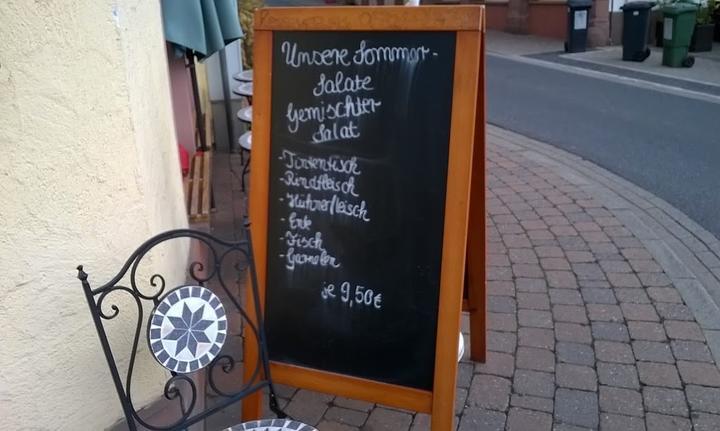 Unsere Sommer-
Salate
Gemischter
Salat
-Tintenfisch
-Rindfleisch
-Hühnerfleisch
-Ente
-Fisch
-Garnelen
je 9,50€